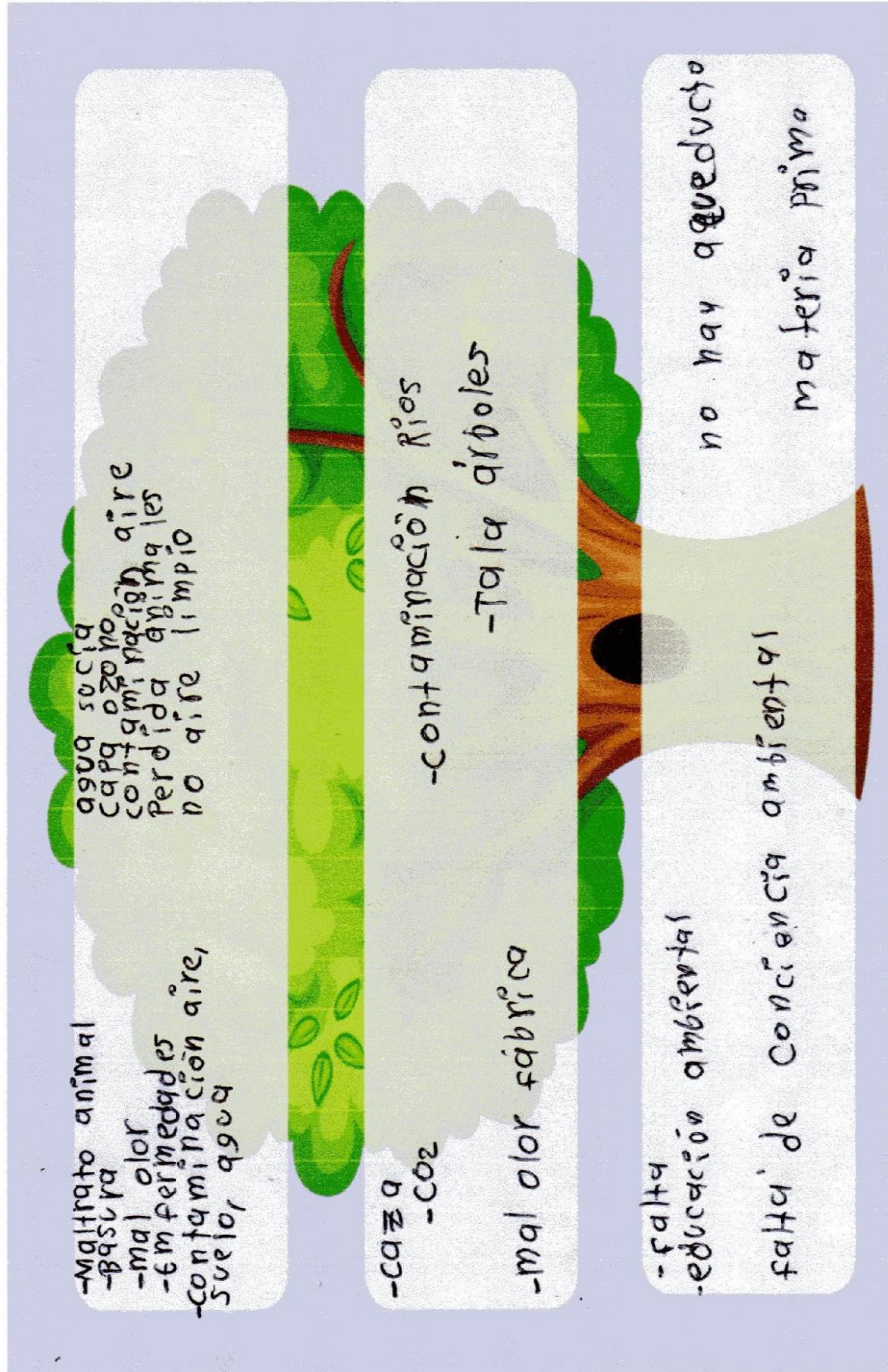 -Maltrato animal
-Basura
-mal olor
-Emfermedades
-contaminación aire,
suelo, agua
agua sucia
capa ozono
contaminación aire
Perdida animales
no aire limpio
-caza
-CO2
-mal olor fábrica
-contaminación Rios
-Tala árboles
-falta
-educación ambiental
falta de conciencia ambiental
no hay aqueducto
materia prima